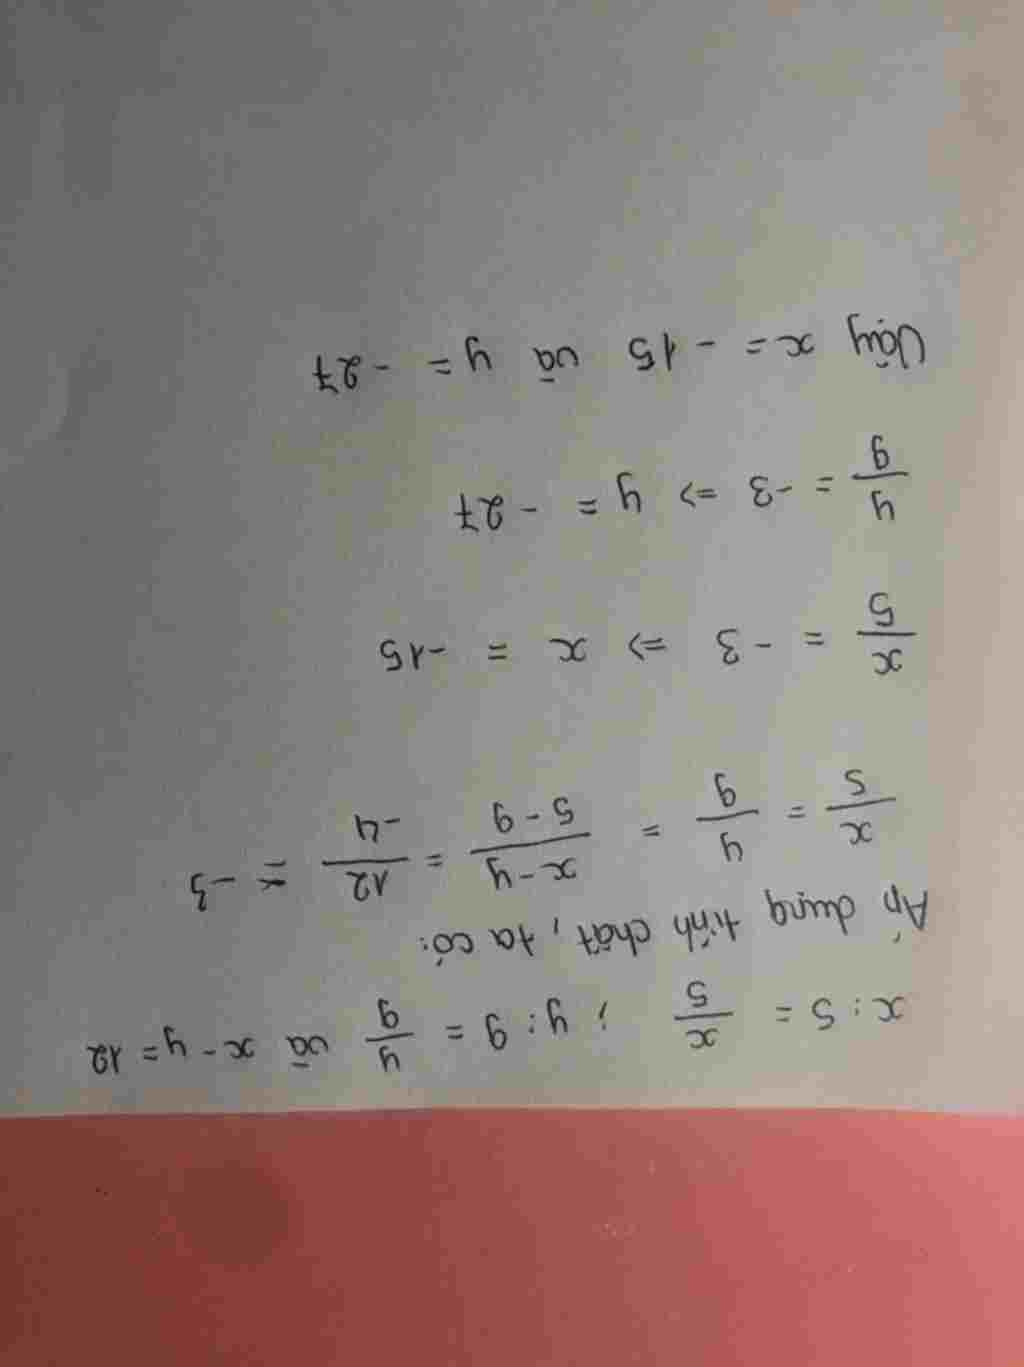 x : 5 = x/5 ; y : 9 = y/9 và x - y = 12
Áp dụng tính chất, ta có:
x/5 = y/9 = (x-y)/(5-9) = 12/-4 = -3
x/5 = -3 => x = -15
y/9 = -3 => y = -27
Vậy x = -15 và y = -27